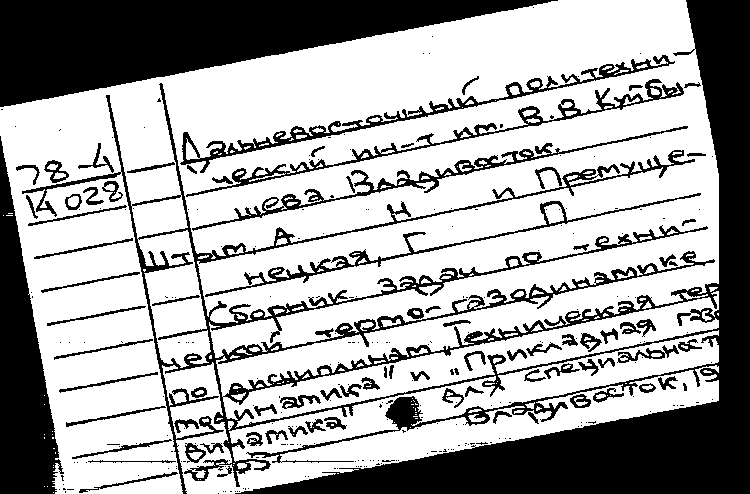 78-4
14028
Дальневосточный политехни-
ческий ин-т им. В.В. Куйбы-
шева. Владивосток.
Штым, А Н и Премуще-
нецкая, Г П
Сборник задач по техни-
ческой термо-газодинамике
по дисциплинам "Техническая тер
модинамика" и "Прикладная газо
динамика" для специальност
0305. Владивосток, 19